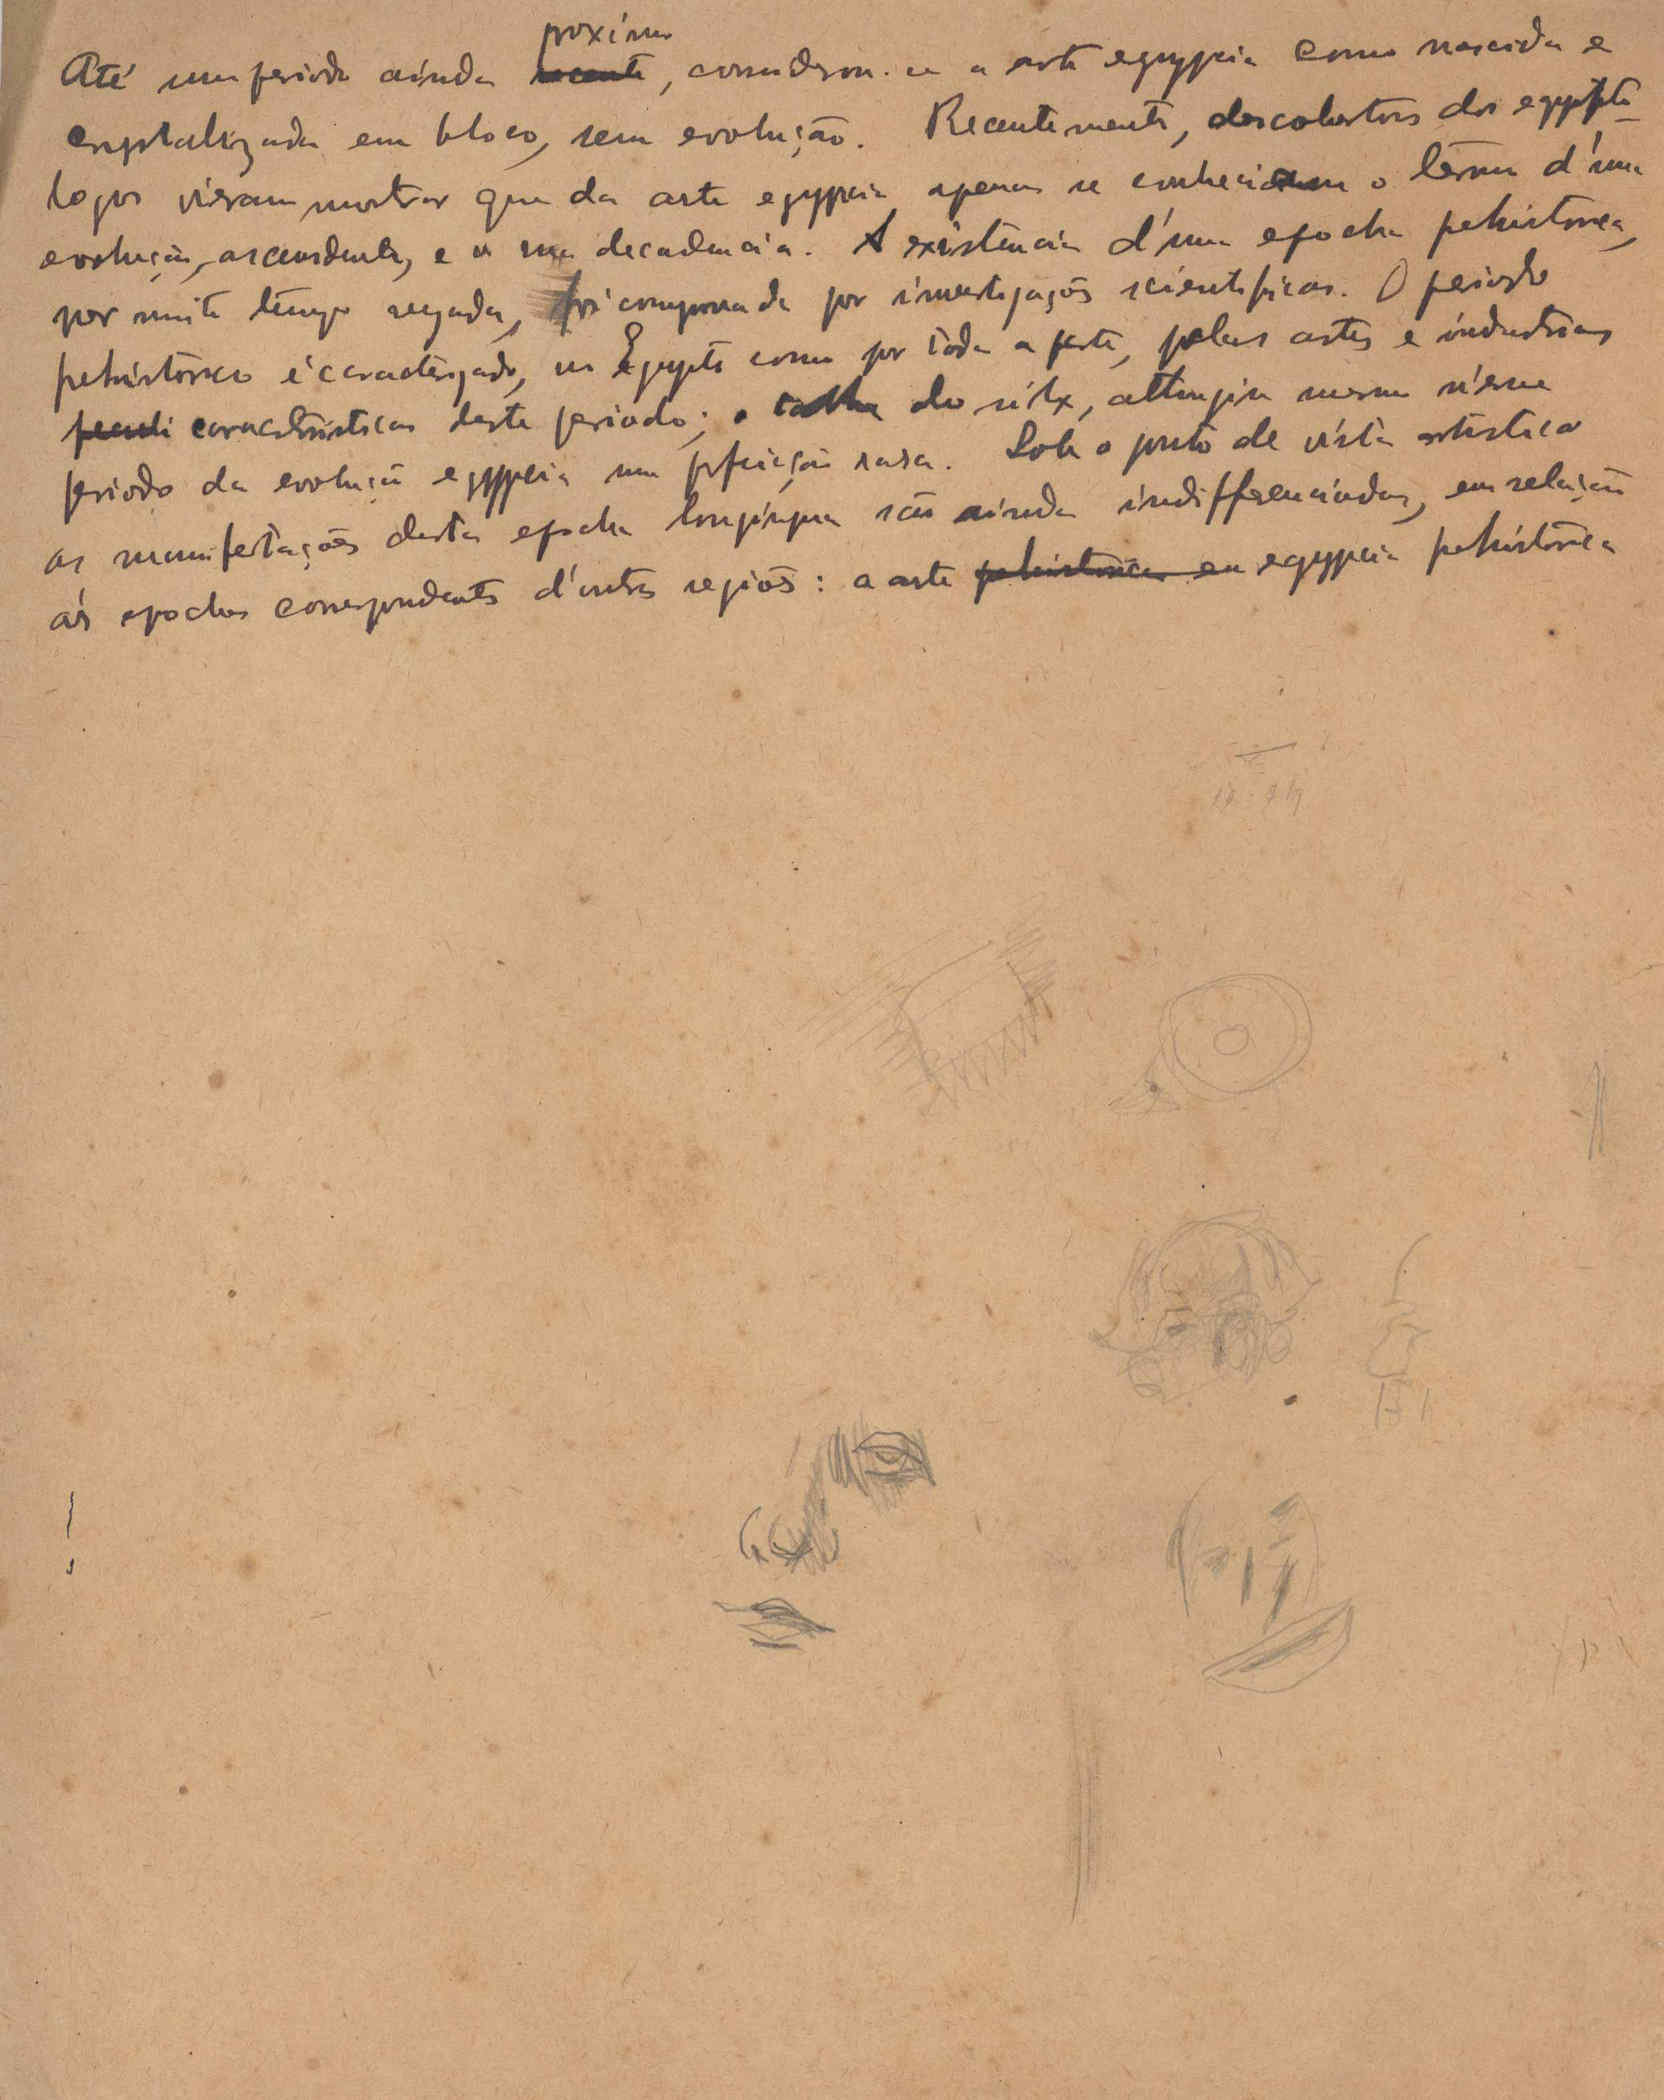 proximo
Até um periodo ainda recente, considerou-se a arte egypcia como nascida e
crystalizada em bloco, sem evolução. Recentemente, descobertas dos egypto-
logos vieram mostrar que da arte egypcia apenas se conheciam o termo d'uma
evolução ascendente, e a sua decadencia. A existencia d'uma epocha prehistorica,
por muito tempo negada, foi comprovada por investigações scientificas. O periodo
prehistorico é caracterizado, no Egypto como por toda a parte, pelas artes e industrias
peculi caracteristicas deste periodo; o talhe do silex, attingiu mesmo n'esse
periodo da evolução egypcia uma perfeição rara. Sob o ponto de vista artistico
as manifestações desta epocha longinqua são ainda indifferenciadas, em relação
ás epochas correspondentes d'outras regiões: a arte prehistorica em egypcia prehistorica